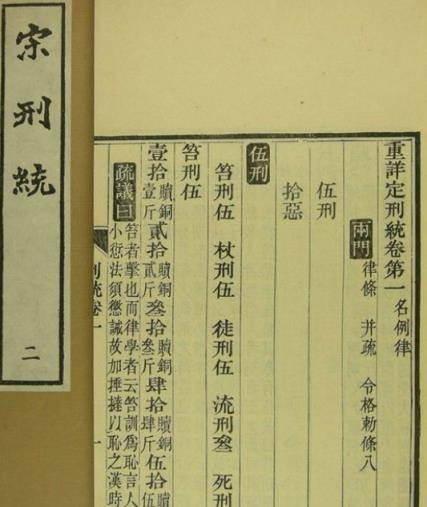 宋刑統
二
重詳定刑統卷第一 名例律
兩門 律條 并疏 令格勅條八
伍刑
拾惡
伍刑
笞刑伍 杖刑伍 徒刑伍 流刑叄 死刑
笞刑伍
壹拾 贖銅壹斤 貳拾 贖銅貳斤 叄拾 贖銅叄斤 肆拾 贖銅肆斤 伍拾 贖銅伍
疏議曰 笞者擊也而律學者云笞訓爲恥言人
小愆法須懲誡故加捶撻以恥之漢時
刑統卷一 一